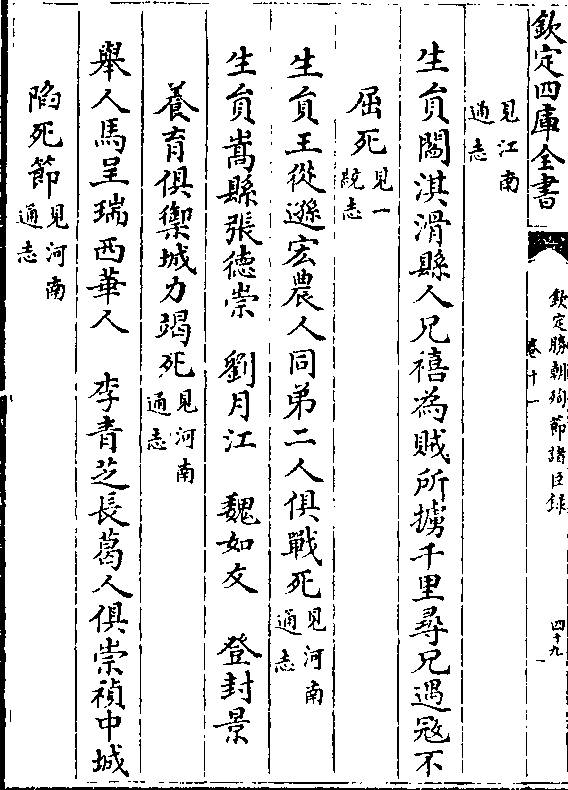 欽定四庫全書
欽定勝朝殉節諸臣錄
卷十一
四十九
見江南
通志
生員閻淇滑縣人兄禧為賊所擄千里尋兄遇冦不
屈死見一
統志
生員王從遜宏農人同弟二人俱戰死見河南
通志
生員嵩縣張德崇　劉月江　魏如友　登封景
養育俱禦城力竭死見河南
通志
舉人馬呈瑞西華人　李青芝長葛人俱崇禎中城
陷死節見河南
通志